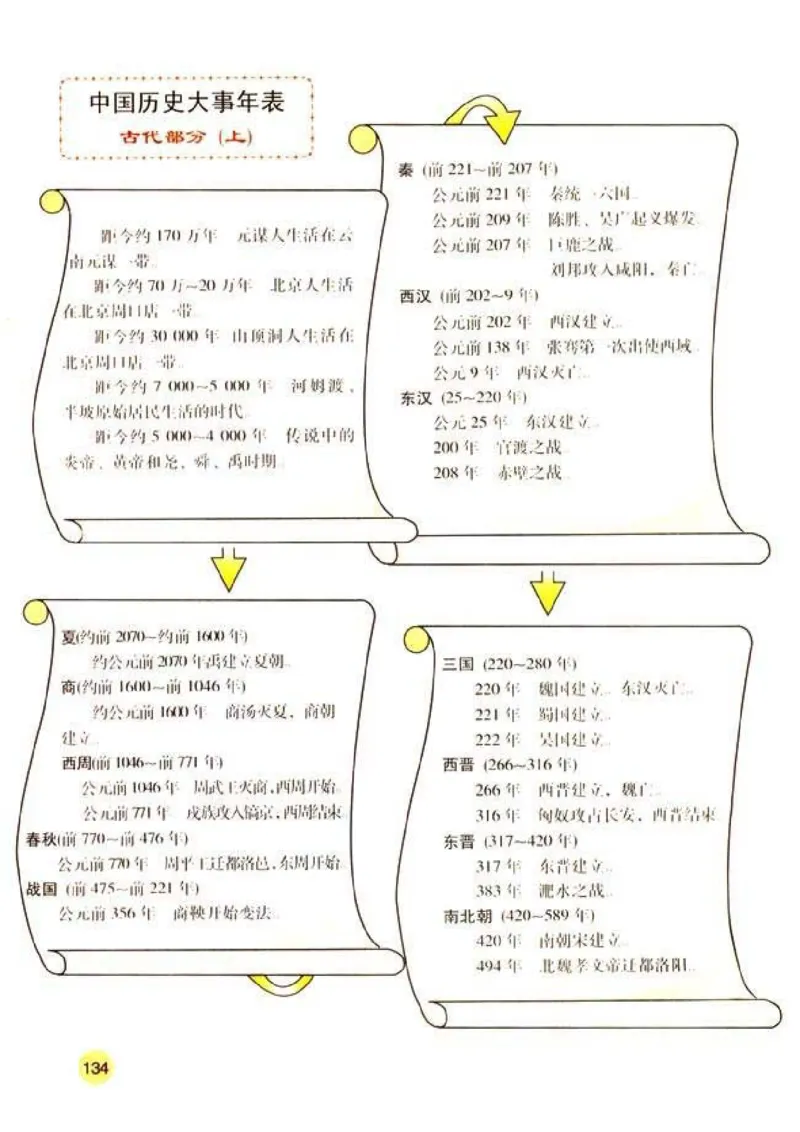 中国历史大事年表
古代部分（上）
距今约 170 万年　元谋人生活在云
南元谋一带。
距今约 70 万~20 万年　北京人生活
在北京周口店一带。
距今约 30 000 年　山顶洞人生活在
北京周口店一带。
距今约 7 000~5 000 年　河姆渡、
半坡原始居民生活的时代。
距今约 5 000~4 000 年　传说中的
炎帝、黄帝和尧、舜、禹时期。
夏(约前 2070~约前 1600 年)
约公元前 2070 年禹建立夏朝。
商(约前 1600~前 1046 年)
约公元前 1600 年　商汤灭夏，商朝
建立。
西周(前 1046~前 771 年)
公元前 1046 年　周武王灭商，西周开始。
公元前 771 年　戎族攻入镐京，西周结束。
春秋(前 770~前 476 年)
公元前 770 年　周平王迁都洛邑，东周开始。
战国 (前 475~前 221 年)
公元前 356 年　商鞅开始变法。
秦 (前 221~前 207 年)
公元前 221 年　秦统一六国。
公元前 209 年　陈胜、吴广起义爆发。
公元前 207 年　巨鹿之战。
刘邦攻入咸阳，秦亡。
西汉 (前 202~9 年)
公元前 202 年　西汉建立。
公元前 138 年　张骞第一次出使西域。
公元 9 年　西汉灭亡。
东汉 (25~220 年)
公元 25 年　东汉建立。
200 年　官渡之战。
208 年　赤壁之战。
三国 (220~280 年)
220 年　魏国建立。东汉灭亡。
221 年　蜀国建立。
222 年　吴国建立。
西晋 (266~316 年)
266 年　西晋建立，魏亡。
316 年　匈奴攻占长安，西晋结束。
东晋 (317~420 年)
317 年　东晋建立。
383 年　淝水之战。
南北朝 (420~589 年)
420 年　南朝宋建立。
494 年　北魏孝文帝迁都洛阳。
134